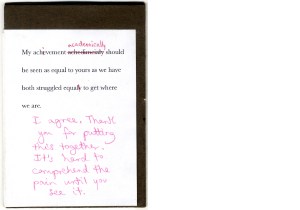 academically
My achivement should
be seen as equal to yours as we have
both struggled equally to get where
we are.
I agree. Thank
you for putting
this together.
It's hard to
comprehend the
pain until you
see it.